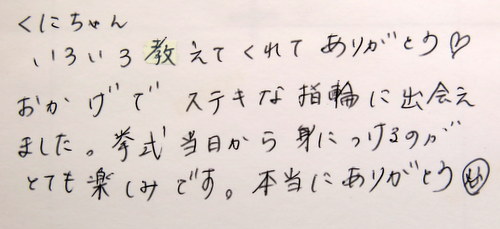 くにちゃん
いろいろ教えてくれてありがとう♡
おかげでステキな指輪に出会え
ました。挙式当日から身につけるのが
とても楽しみです。本当にありがとう